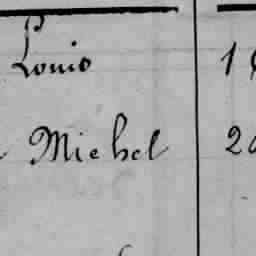 Louis 1
Michel 2